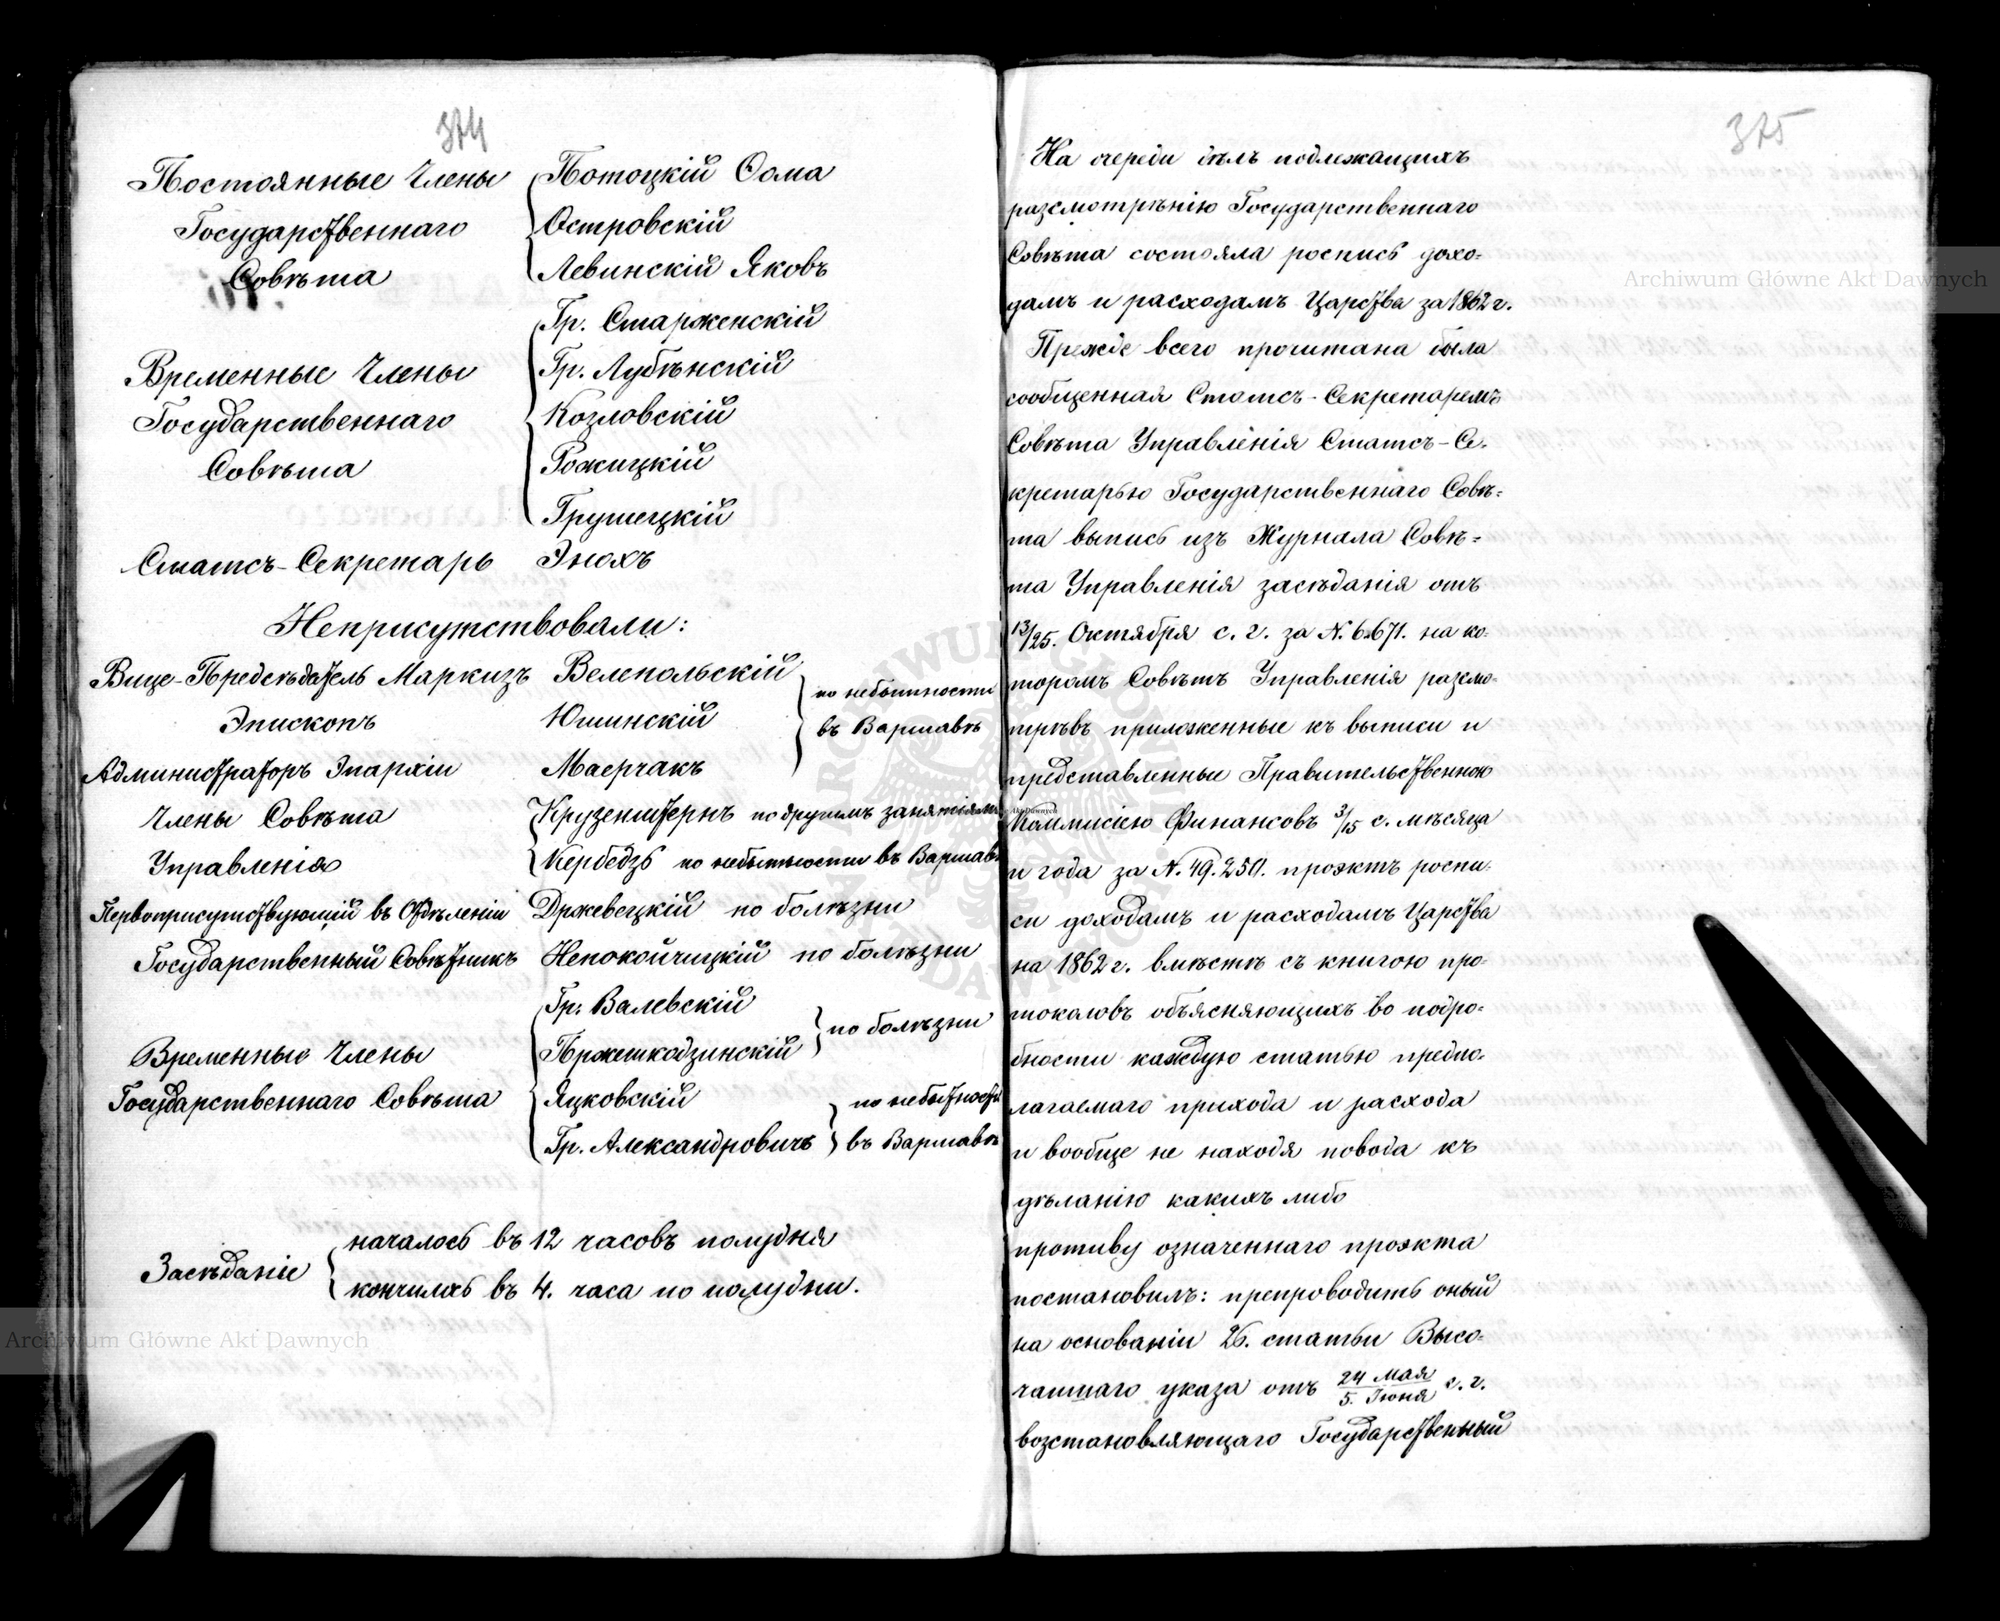 374
Постоянные Члены
Государственнаго
Совѣта
Потоцкій Ѳома
Островскій
Левинскій Яковъ
Временные Члены
Государственнаго
Совѣта
Гр. Старженскій
Гр. Лубѣнскій
Козловскій
Рожицкій
Грушецкій
Статсъ-Секретарь Энохъ
Неприсутствовали:
Вице-Предсѣдатель Маркизъ Велепольскій
Эпископъ Юшинскій
по небытности
въ Варшавѣ
Администраторъ Эпархіи Маерчакъ
Члены Совѣта
Управленія
Крузенштернъ по другимъ занятіямъ
Кербедзъ по небытности въ Варшавѣ
Первоприсутствующій въ Отдѣленіи Држевецкій по болѣзни
Государственный Совѣтникъ Непокойчицкій по болѣзни
Временные Члены
Государственнаго Совѣта
Гр. Валевскій
Пржешкодзинскій
по болѣзни
Яцковскій
Гр. Александровичъ
по небытности
въ Варшавѣ
Засѣданіе
началось въ 12 часовъ полудня
кончилось въ 4. часа по полудни.
375
На очереди дѣлъ подлежащихъ
разсмотрѣнію Государственнаго
Совѣта состояла роспись дохо-
дамъ и расходамъ Царства за 1862 г.
Прежде всего прочитана была
сообщенная Статсъ-Секретаремъ
Совѣта Управленія Статсъ-Се-
кретарью Государственнаго Совѣ-
та выпись изъ Журнала Совѣ-
та Управленія засѣданія отъ
13/25. Октября с. г. за N. 6.671. на ко-
торомъ Совѣтъ Управленія разсмо-
трѣвъ приложенные къ выписи и
представленные Правительственною
Коммисіею Финансовъ 3/15 с. мѣсяца
и года за N. 49.250. проэктъ роспи-
си доходамъ и расходамъ Царства
на 1862 г. вмѣстѣ съ книгою про-
токаловъ объясняющихъ во подро-
бности каждую статью предпо-
лагаемаго прихода и расхода
и вообще не находя повода къ
дѣланію какихъ либо
противу означеннаго проэкта
постановилъ: препроводить оный
на основаніи 26. статьи Высо-
чайшаго указа отъ 24 Мая/5. Іюня с. г.
возстановляющаго Государственный
Archiwum Główne Akt Dawnych
Archiwum Główne Akt Dawnych